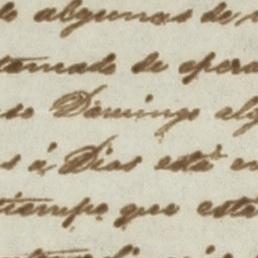 algunas de
tomado de opera
Domingo alg
s á Dias está en
tiempo que esta